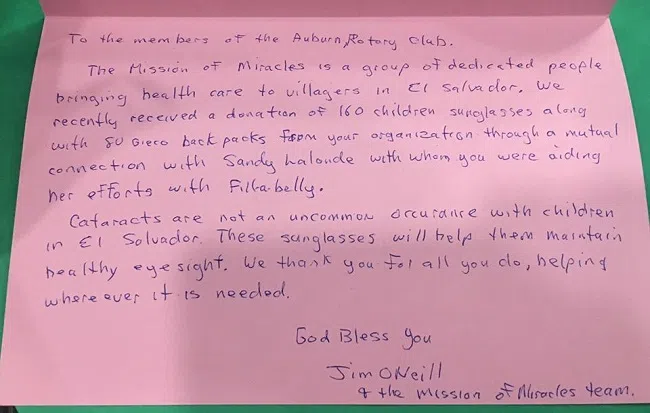 To the members of the Auburn, Rotary club.
The Mission of Miracles is a group of dedicated people
bringing health care to villagers in El Salvador. We
recently received a donation of 160 children sunglasses along
with 80 Gieco back packs from your organization through a mutual
connection with Sandy Lalonde with whom you were aiding
her efforts with Fill-a-belly.
Cataracts are not an uncommon occurance with children
in El Salvador. These sunglasses will help them maintain
healthy eye sight. We thank you for all you do, helping
where ever it is needed.
God Bless You
Jim ONeill
& the Mission of Miracles team.